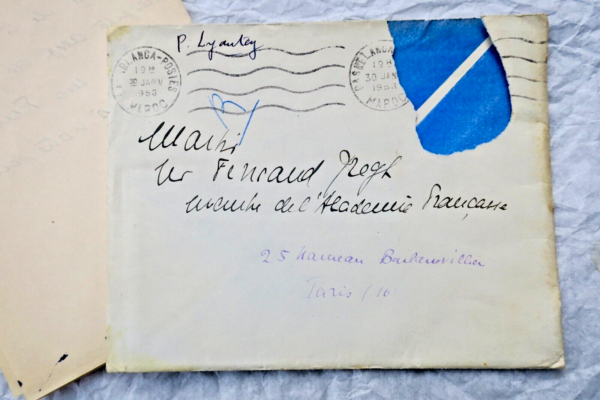 P. Lyautey
CASABLANCA-POSTES
19H
30 JANV
1960
MAROC
CASABLANCA
19H
30 JANV
MAROC
Mr Fernand Gregh
membre de l'Académie Française
25 Hameau Boulainvilliers
Paris (16